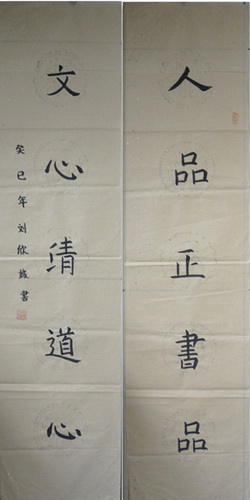 人品正書品
文心清道心
癸巳年刘欣書